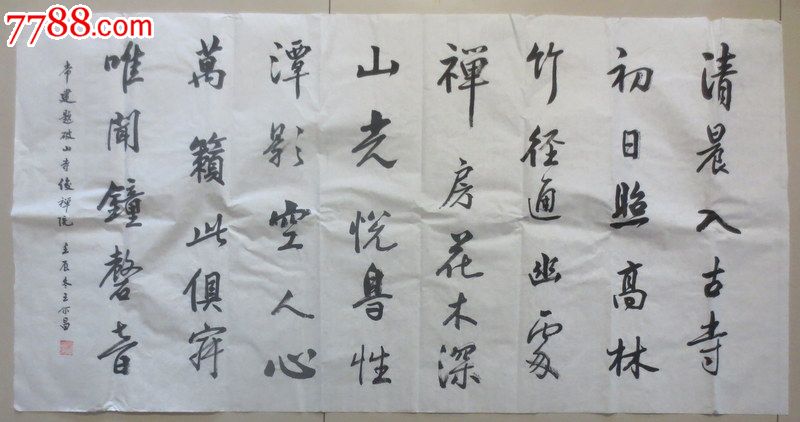 7788.com
清晨入古寺
初日照高林
竹径通幽處
禪房花木深
山光悦鳥性
潭影空人心
萬籟此俱寂
唯聞鐘磬音
常建題破山寺後禪院 壬辰冬王不昌